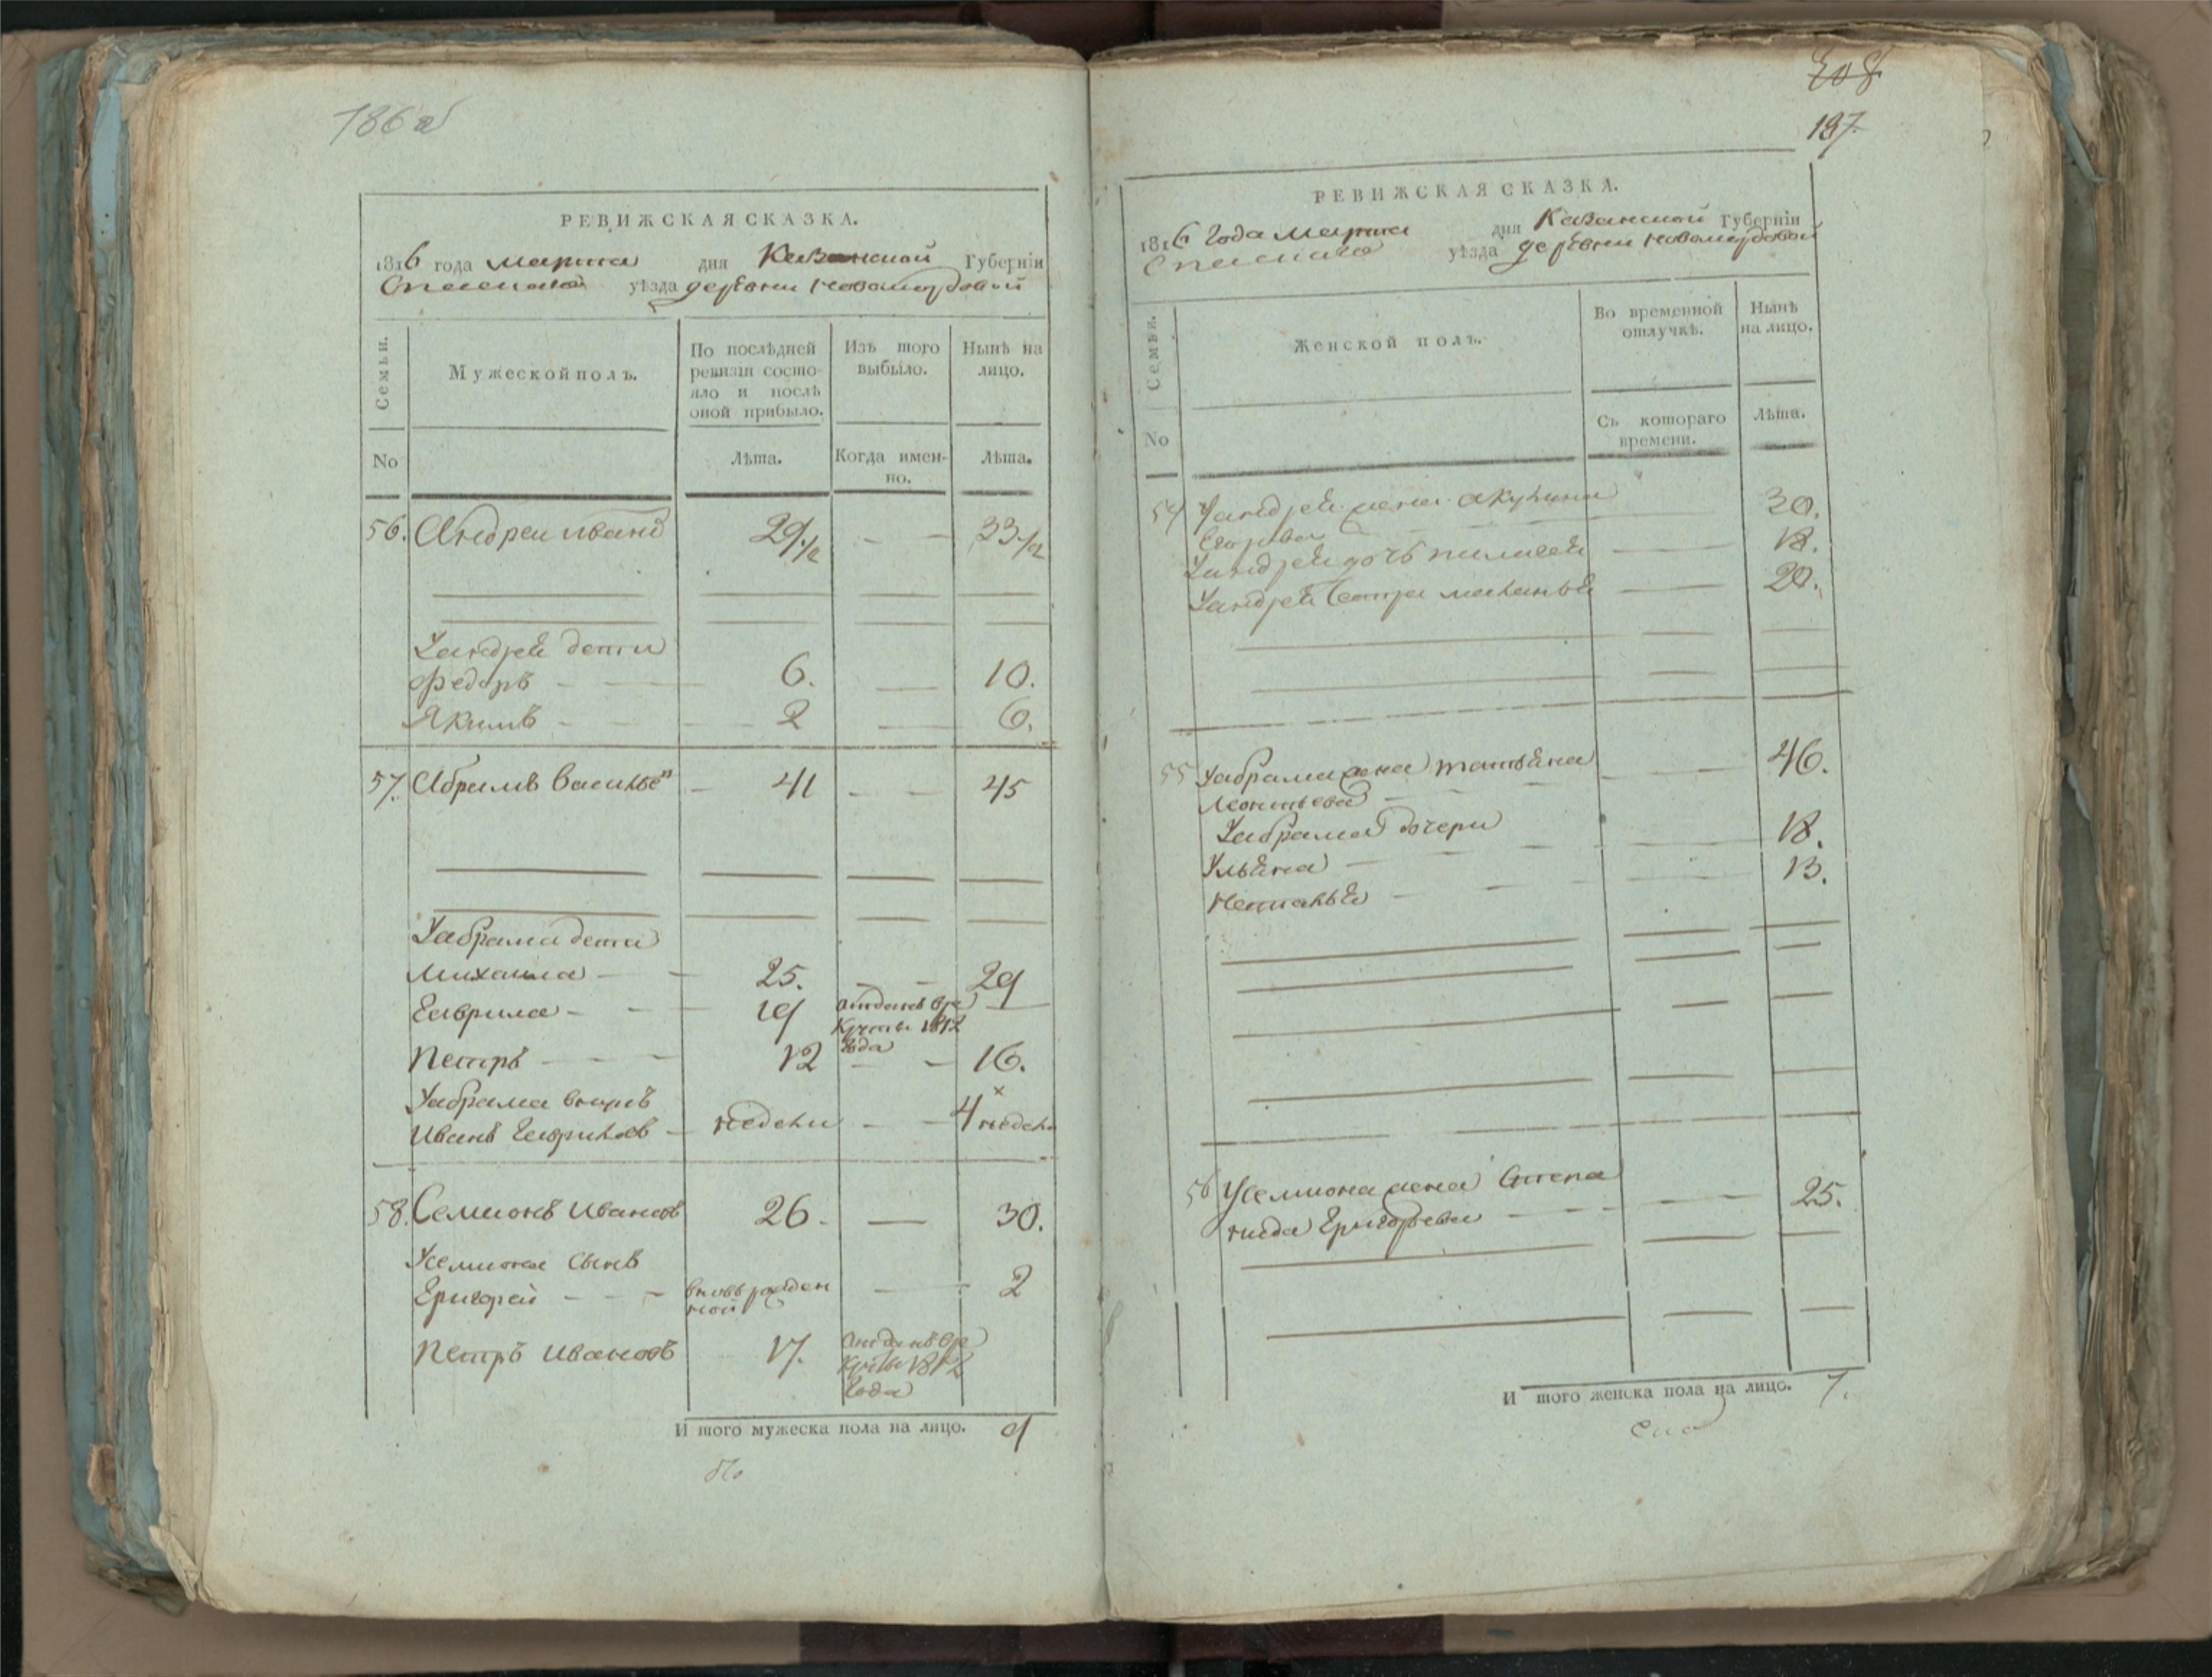 186 об
РЕВИЖСКАЯ СКАЗКА.
1816 года марта дня Казанской Губернїи
Спаскаго уѣзда деревни Новомордовой
Семьи.
Мужеской полъ.
По послѣдней ревизїи состояло и послѣ оной прибыло.
Изъ того выбыло.
Нынѣ на лицо.
No
Лѣта.
Когда именно.
Лѣта.
56. Андреи ивано 29 1/2 — — 33 1/2
Уандрея дети
Федоръ — — 6. — 10.
Якимъ — — 2 — 6.
57. Абрамъ Василье — 41 — — 45
Уабрама дети
Михаила — — 25. — — 29
Гаврила — — 19 отданъ в ре
круты 1812
года —
Петръ — — — 12 — — 16.
Уабрама внукъ
Иванъ Гаврилов — недели — — 4 недели
58. Семионъ Иванов 26. — 30.
Усемиона сынъ
Григорей — — — вновь рожден
ной — 2
Петръ Ивановъ 17. отданъ в ре
круты 1812
года
И того мужеска пола на лицо. 9
208
187.
РЕВИЖСКАЯ СКАЗКА.
1816 года марта дня Казанской Губернїи
Спаскаго уѣзда деревни Новомордовой
Семьи.
Женской полъ.
Во временной отлучкѣ.
Нынѣ на лицо.
No
Съ котораго времени.
Лѣта.
54 Уандрея жена акулина — 30.
Егорова
Уандрея дочь пилагея — 18.
Уандрея сестра маланья — 20.
55 Уабрама жена татьяна — — 46.
Леонтьева —
Уабрама дочери
Ульяна — — 18.
Наталья — — 13.
56 Усемиона жена Степа
нида Григорьева — — — 25.
И того женска пола на лицо. 7.